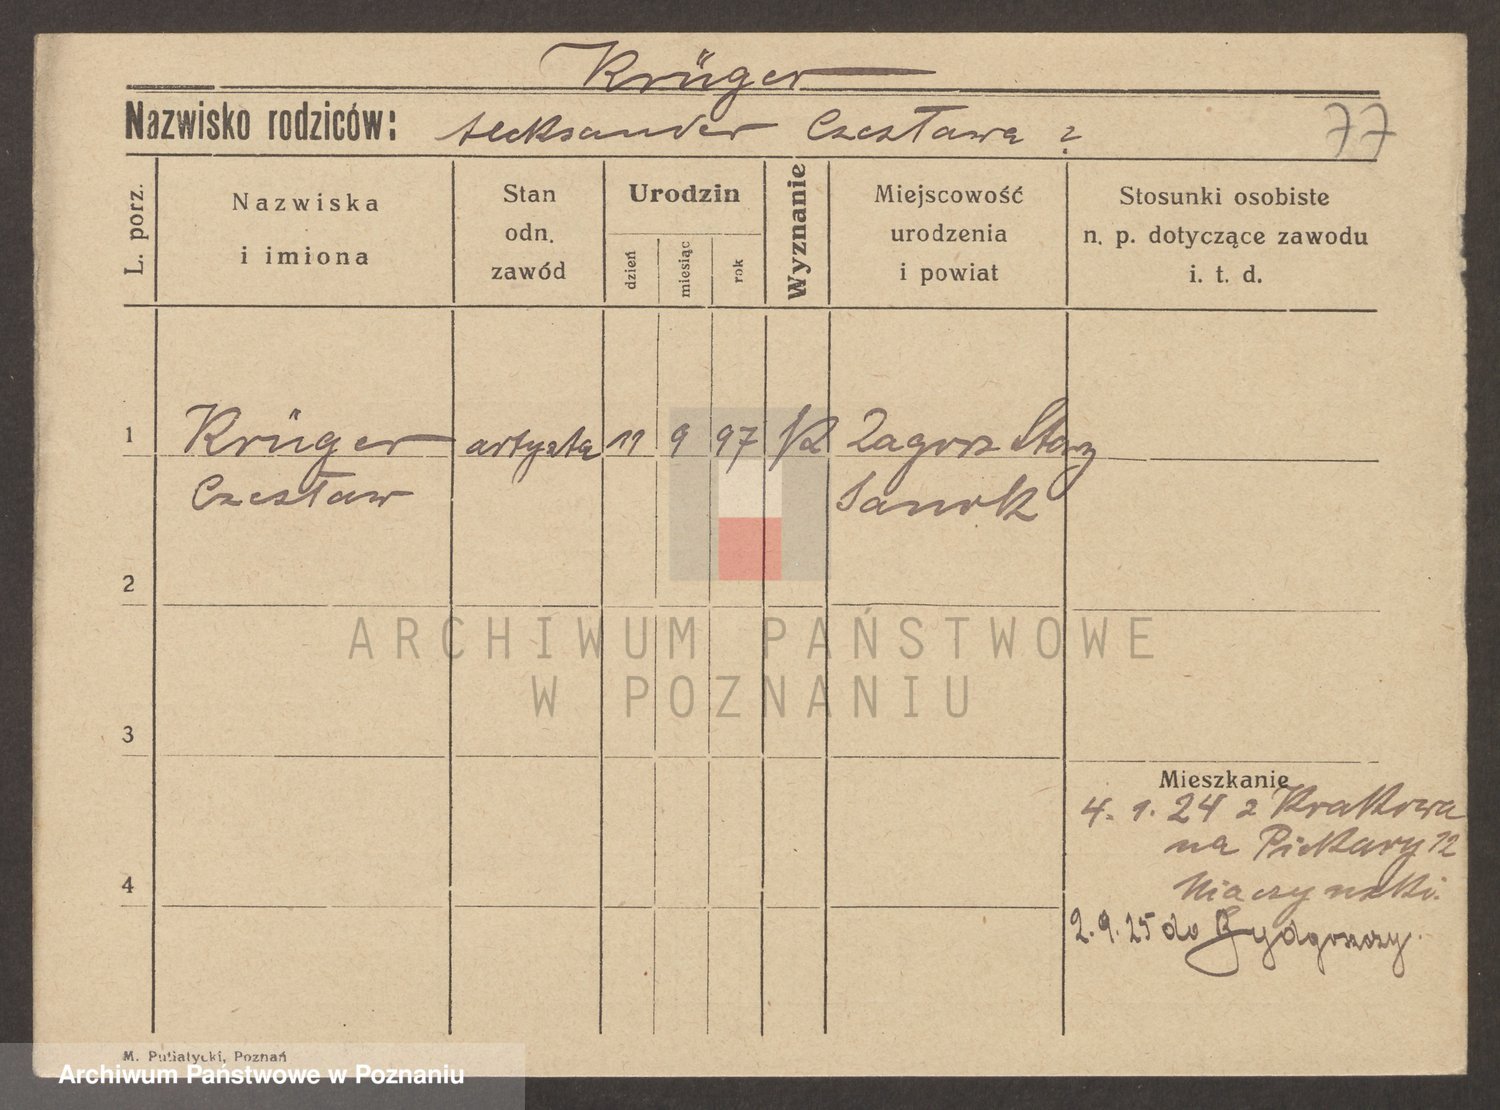 Krüger
Nazwisko rodziców: Aleksander Czesława ?
77
L. porz.
Nazwiska
i imiona
Stan
odn.
zawód
Urodzin
dzień
miesiąc
rok
Wyznanie
Miejscowość
urodzenia
i powiat
Stosunki osobiste
n. p. dotyczące zawodu
i. t. d.
1
Krüger artysta 11 9 97 Zagorz Stary
Czesław Sanok
2
ARCHIWUM PAŃSTWOWE
W POZNANIU
3
Mieszkanie
4. 1. 24 z Krakowa
na Piekary 12
4
2. 9. 25 do Bydgoszczy.
M. Putiatycki, Poznań
Archiwum Państwowe w Poznaniu